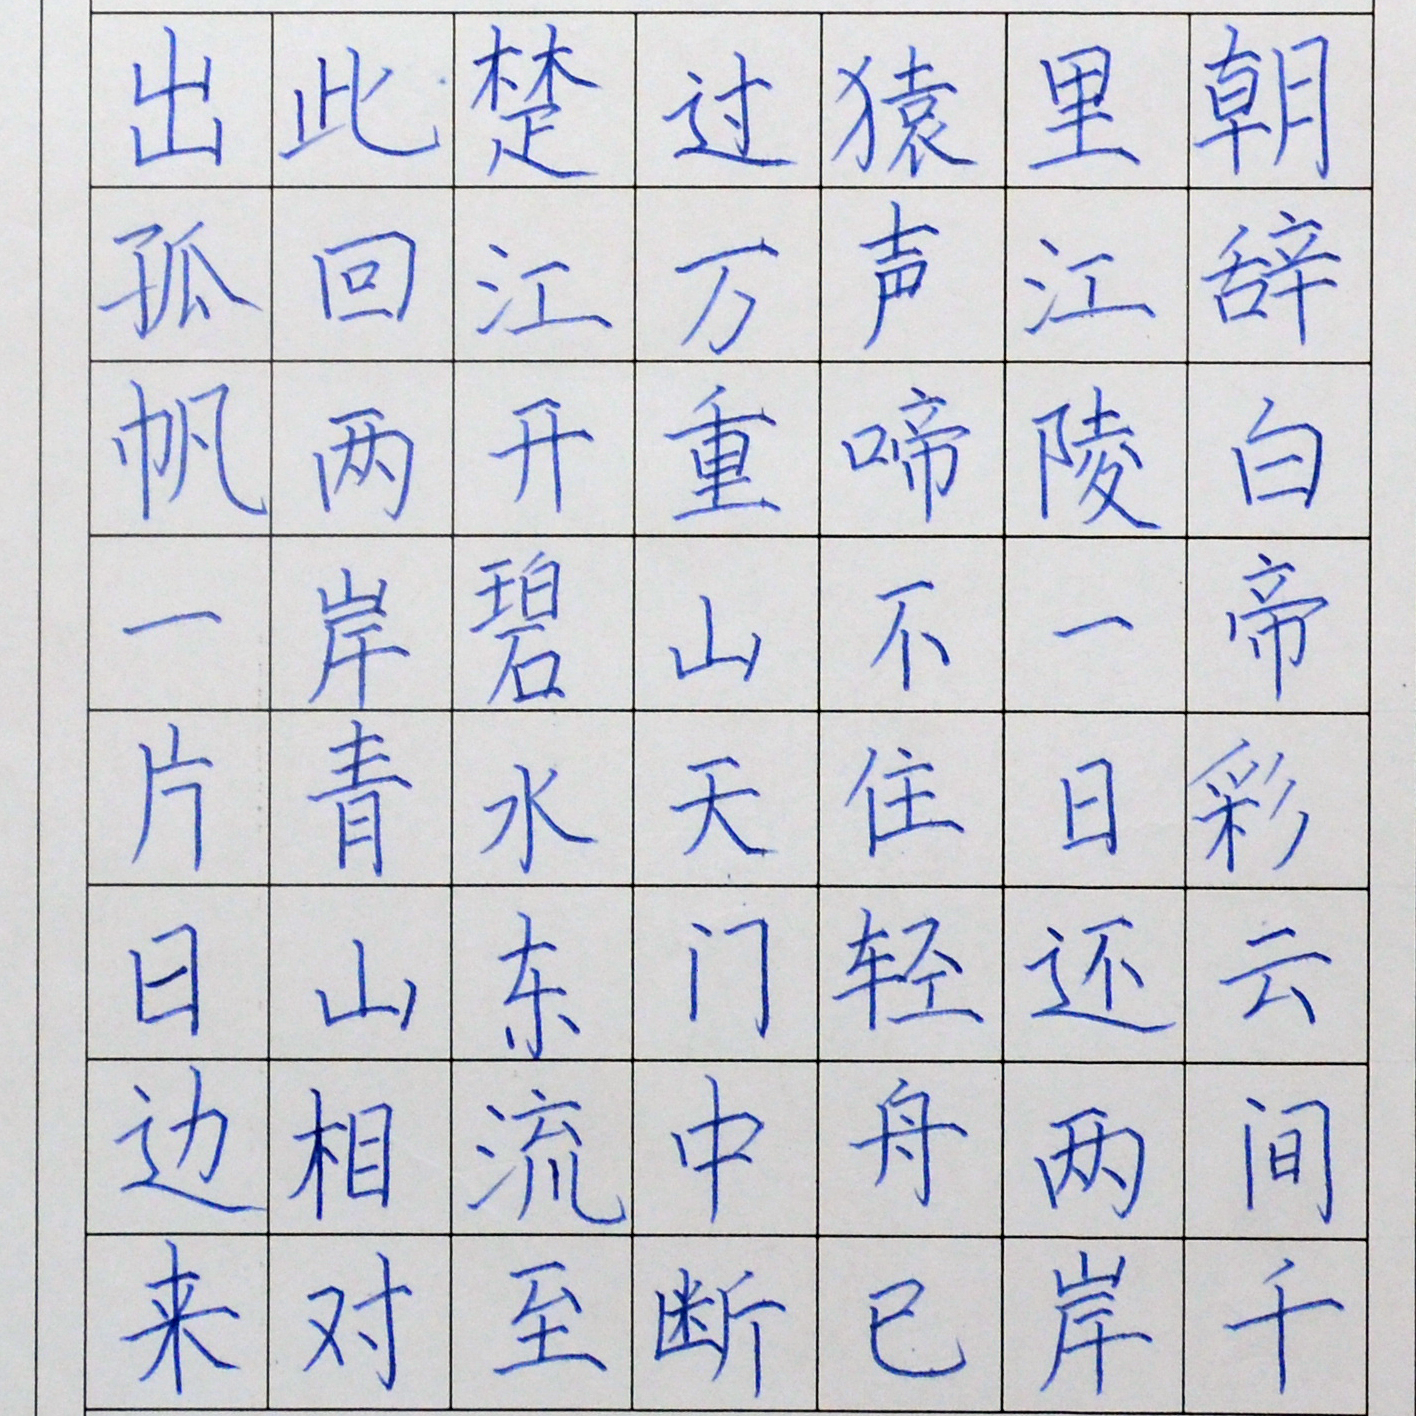 朝辞白帝彩云间千
里江陵一日还两岸
猿声啼不住轻舟已
过万重山天门中断
楚江开碧水东流至
此回两岸青山相对
出孤帆一片日边来